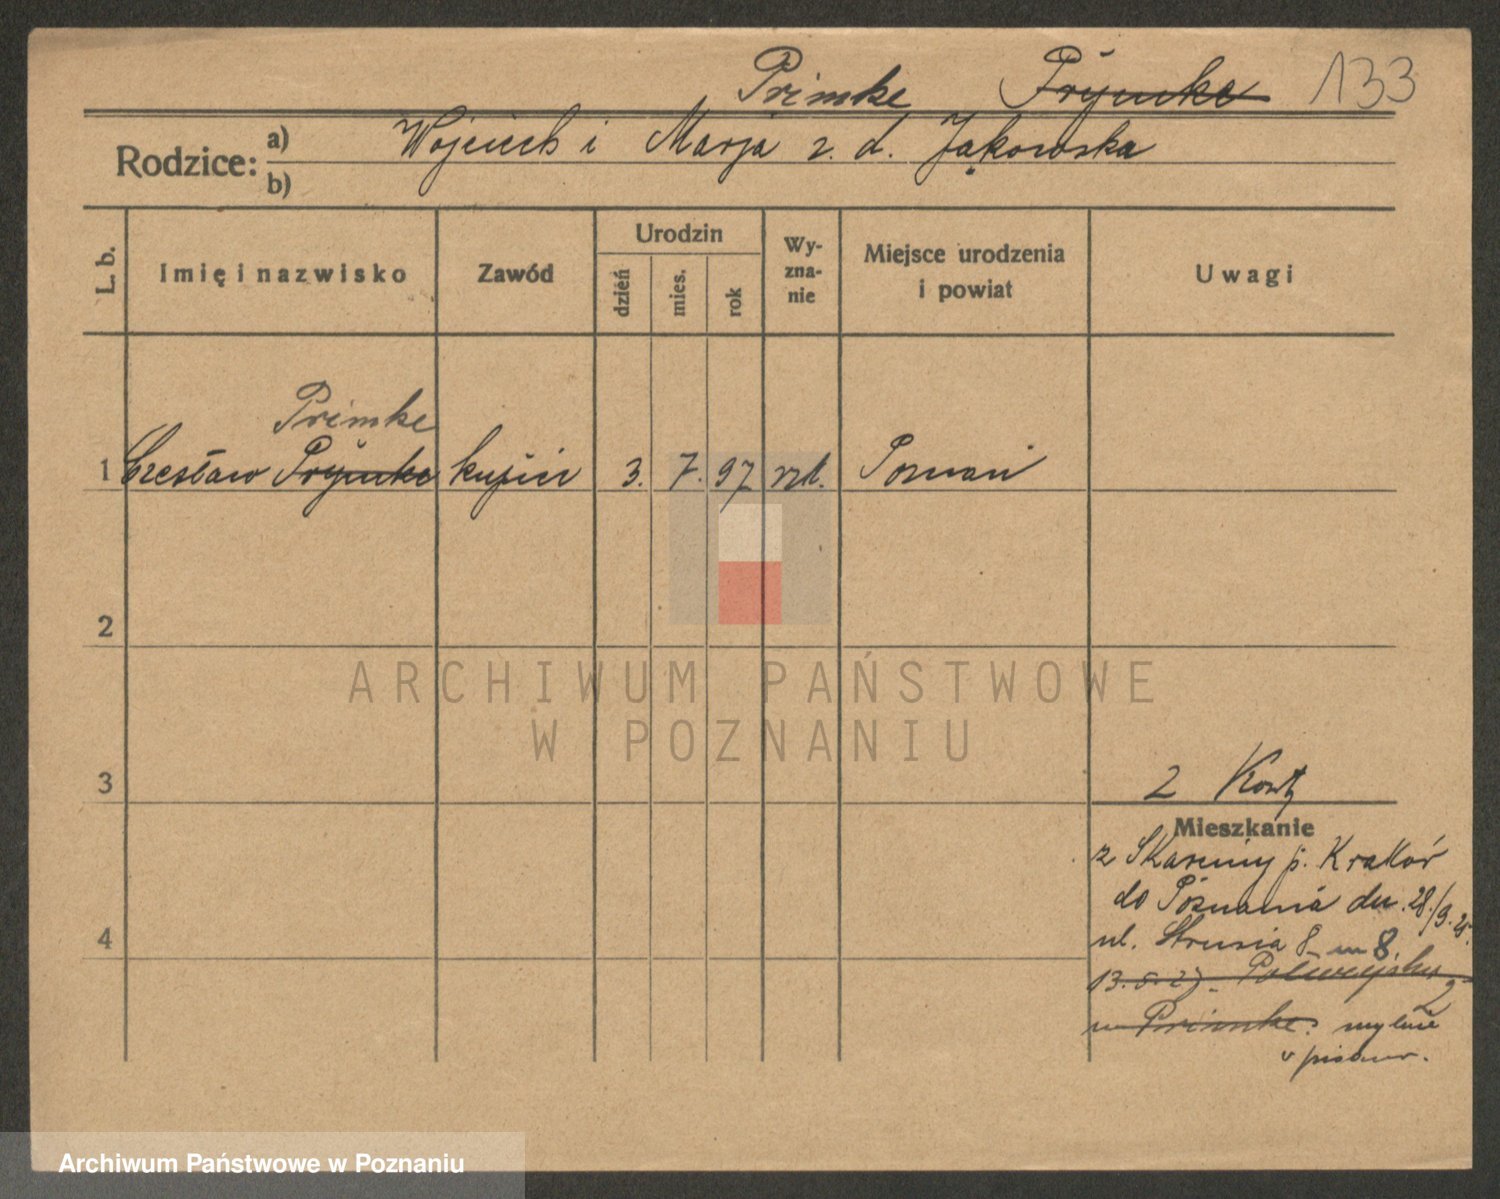 Primke Prymke 133
Rodzice: a) Wojciech i Marja z. d. Jąkowska
b)
L. b. Imię i nazwisko Zawód Urodzin dzień mies. rok Wyznanie Miejsce urodzenia i powiat Uwagi
Primke
1 Czesław Prymke kupiec 3. 7. 97 rzk. Poznań
2
ARCHIWUM PAŃSTWOWE
W POZNANIU
3
2 Karty
Mieszkanie
z Skawiny p. Kraków
do Poznania dn. 28/9. 25.
4
ul. Strusia 8 m 8
13. 5. 27. 2
u Primke. mylnie
Archiwum Państwowe w Poznaniu